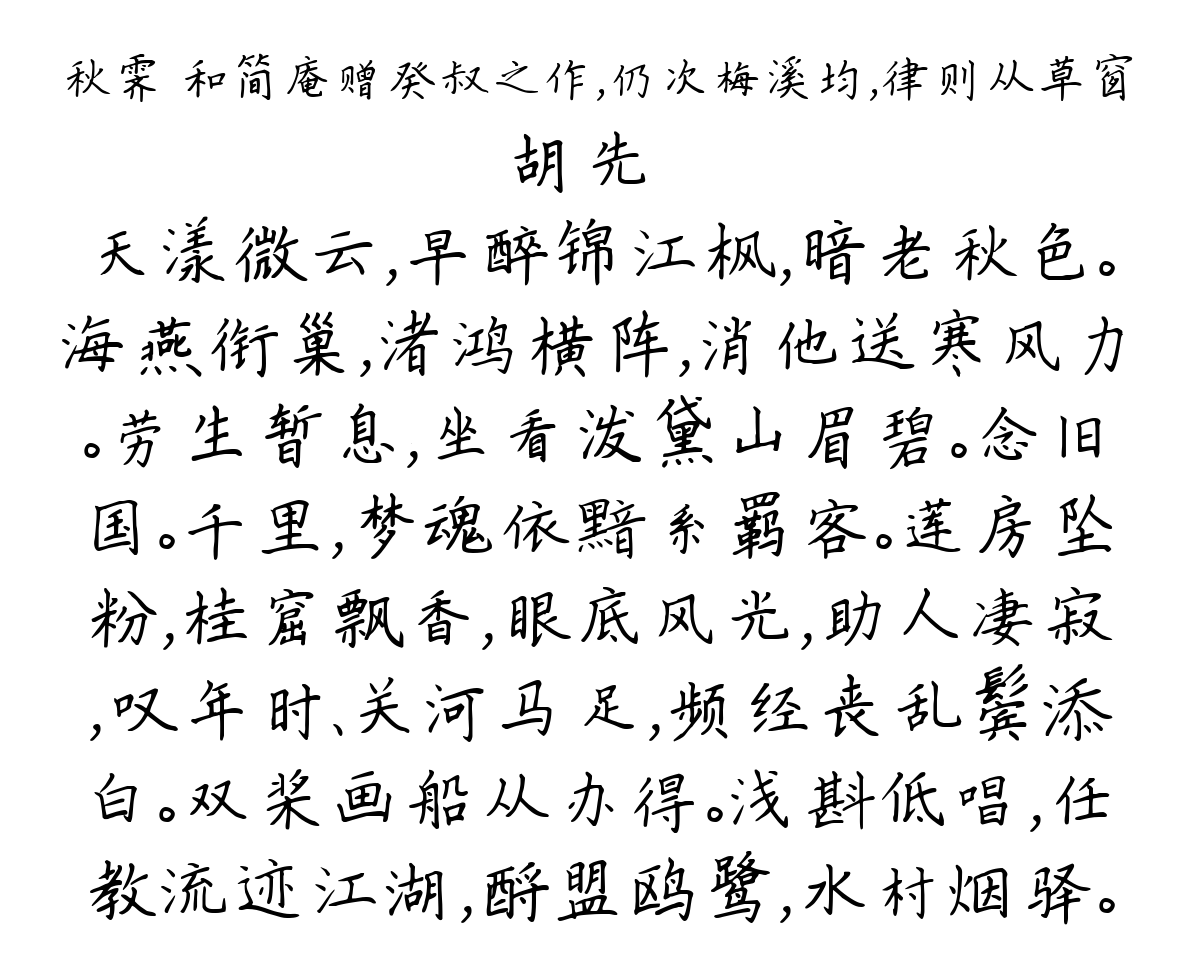 秋霁 和简庵赠癸叔之作,仍次梅溪均,律则从草窗
胡先
天漾微云,早醉锦江枫,暗老秋色。
海燕衔巢,渚鸿横阵,消他送寒风力
。劳生暂息,坐看泼黛山眉碧。念旧
国。千里,梦魂依黯系羁客。莲房坠
粉,桂窟飘香,眼底风光,助人凄寂
,叹年时、关河马足,频经丧乱鬓添
白。双桨画船从办得。浅斟低唱,任
教流迹江湖,酹盟鸥鹭,水村烟驿。